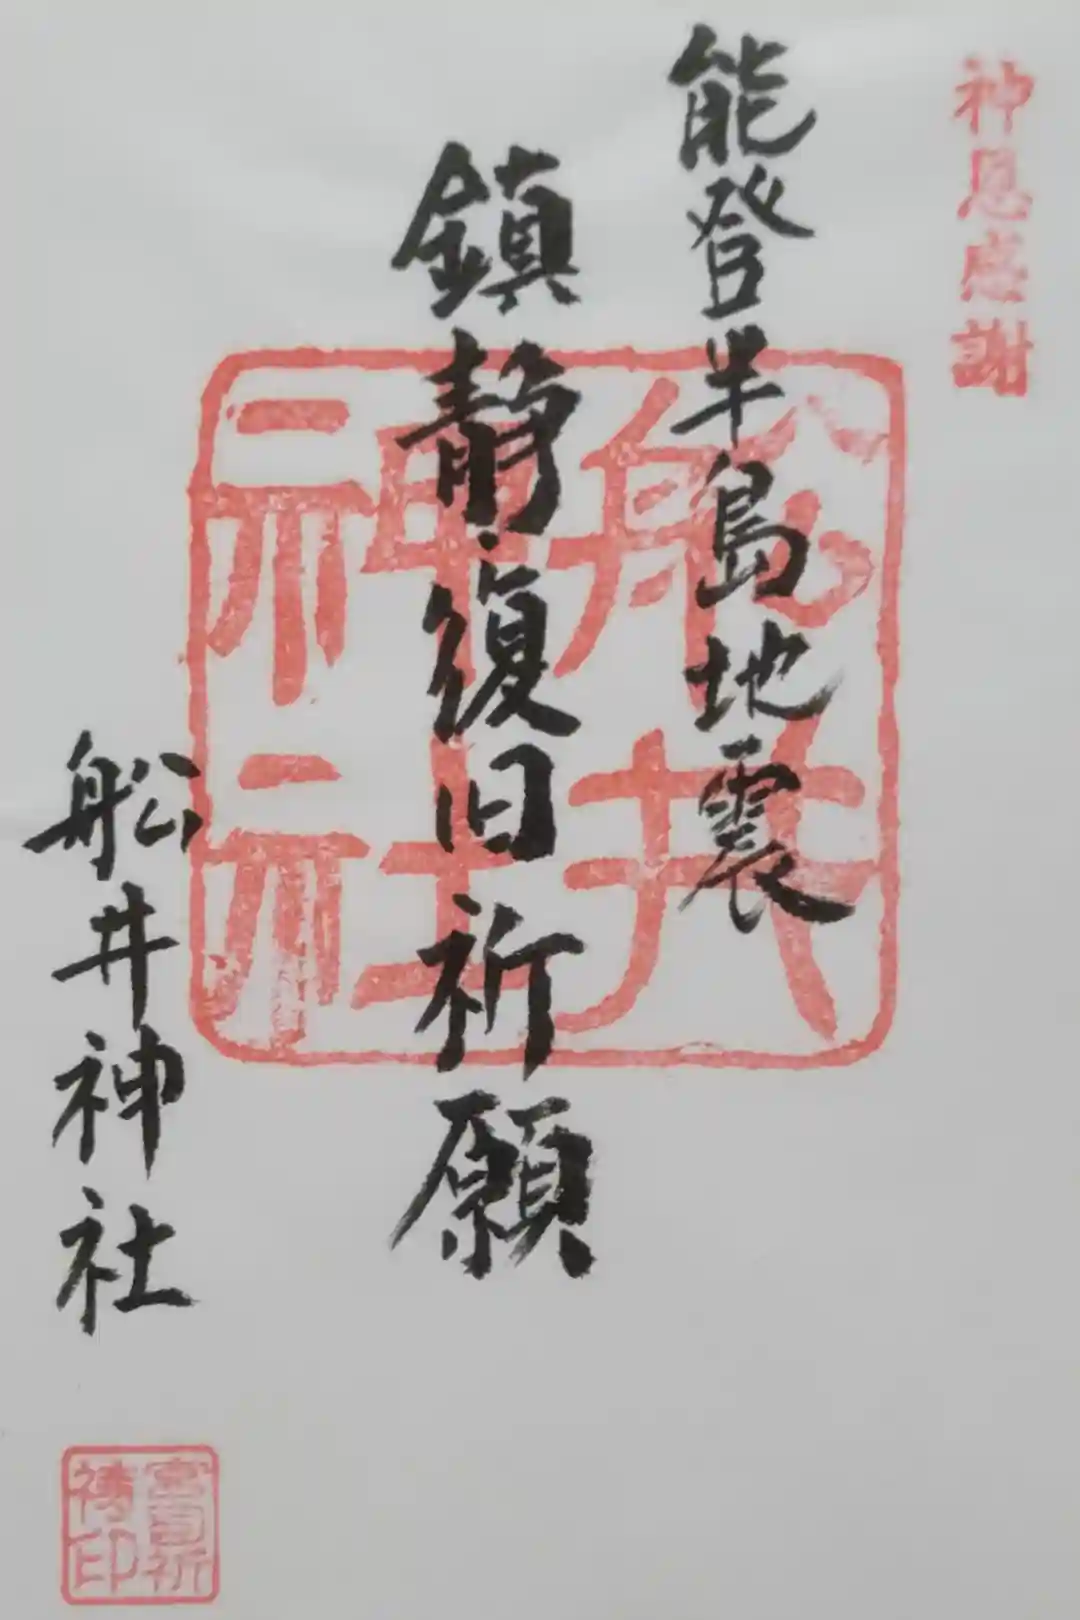 神恩感謝
能登半島地震
鎮静復旧祈願
舩井神社
船井
神社
宮司祈
祷印